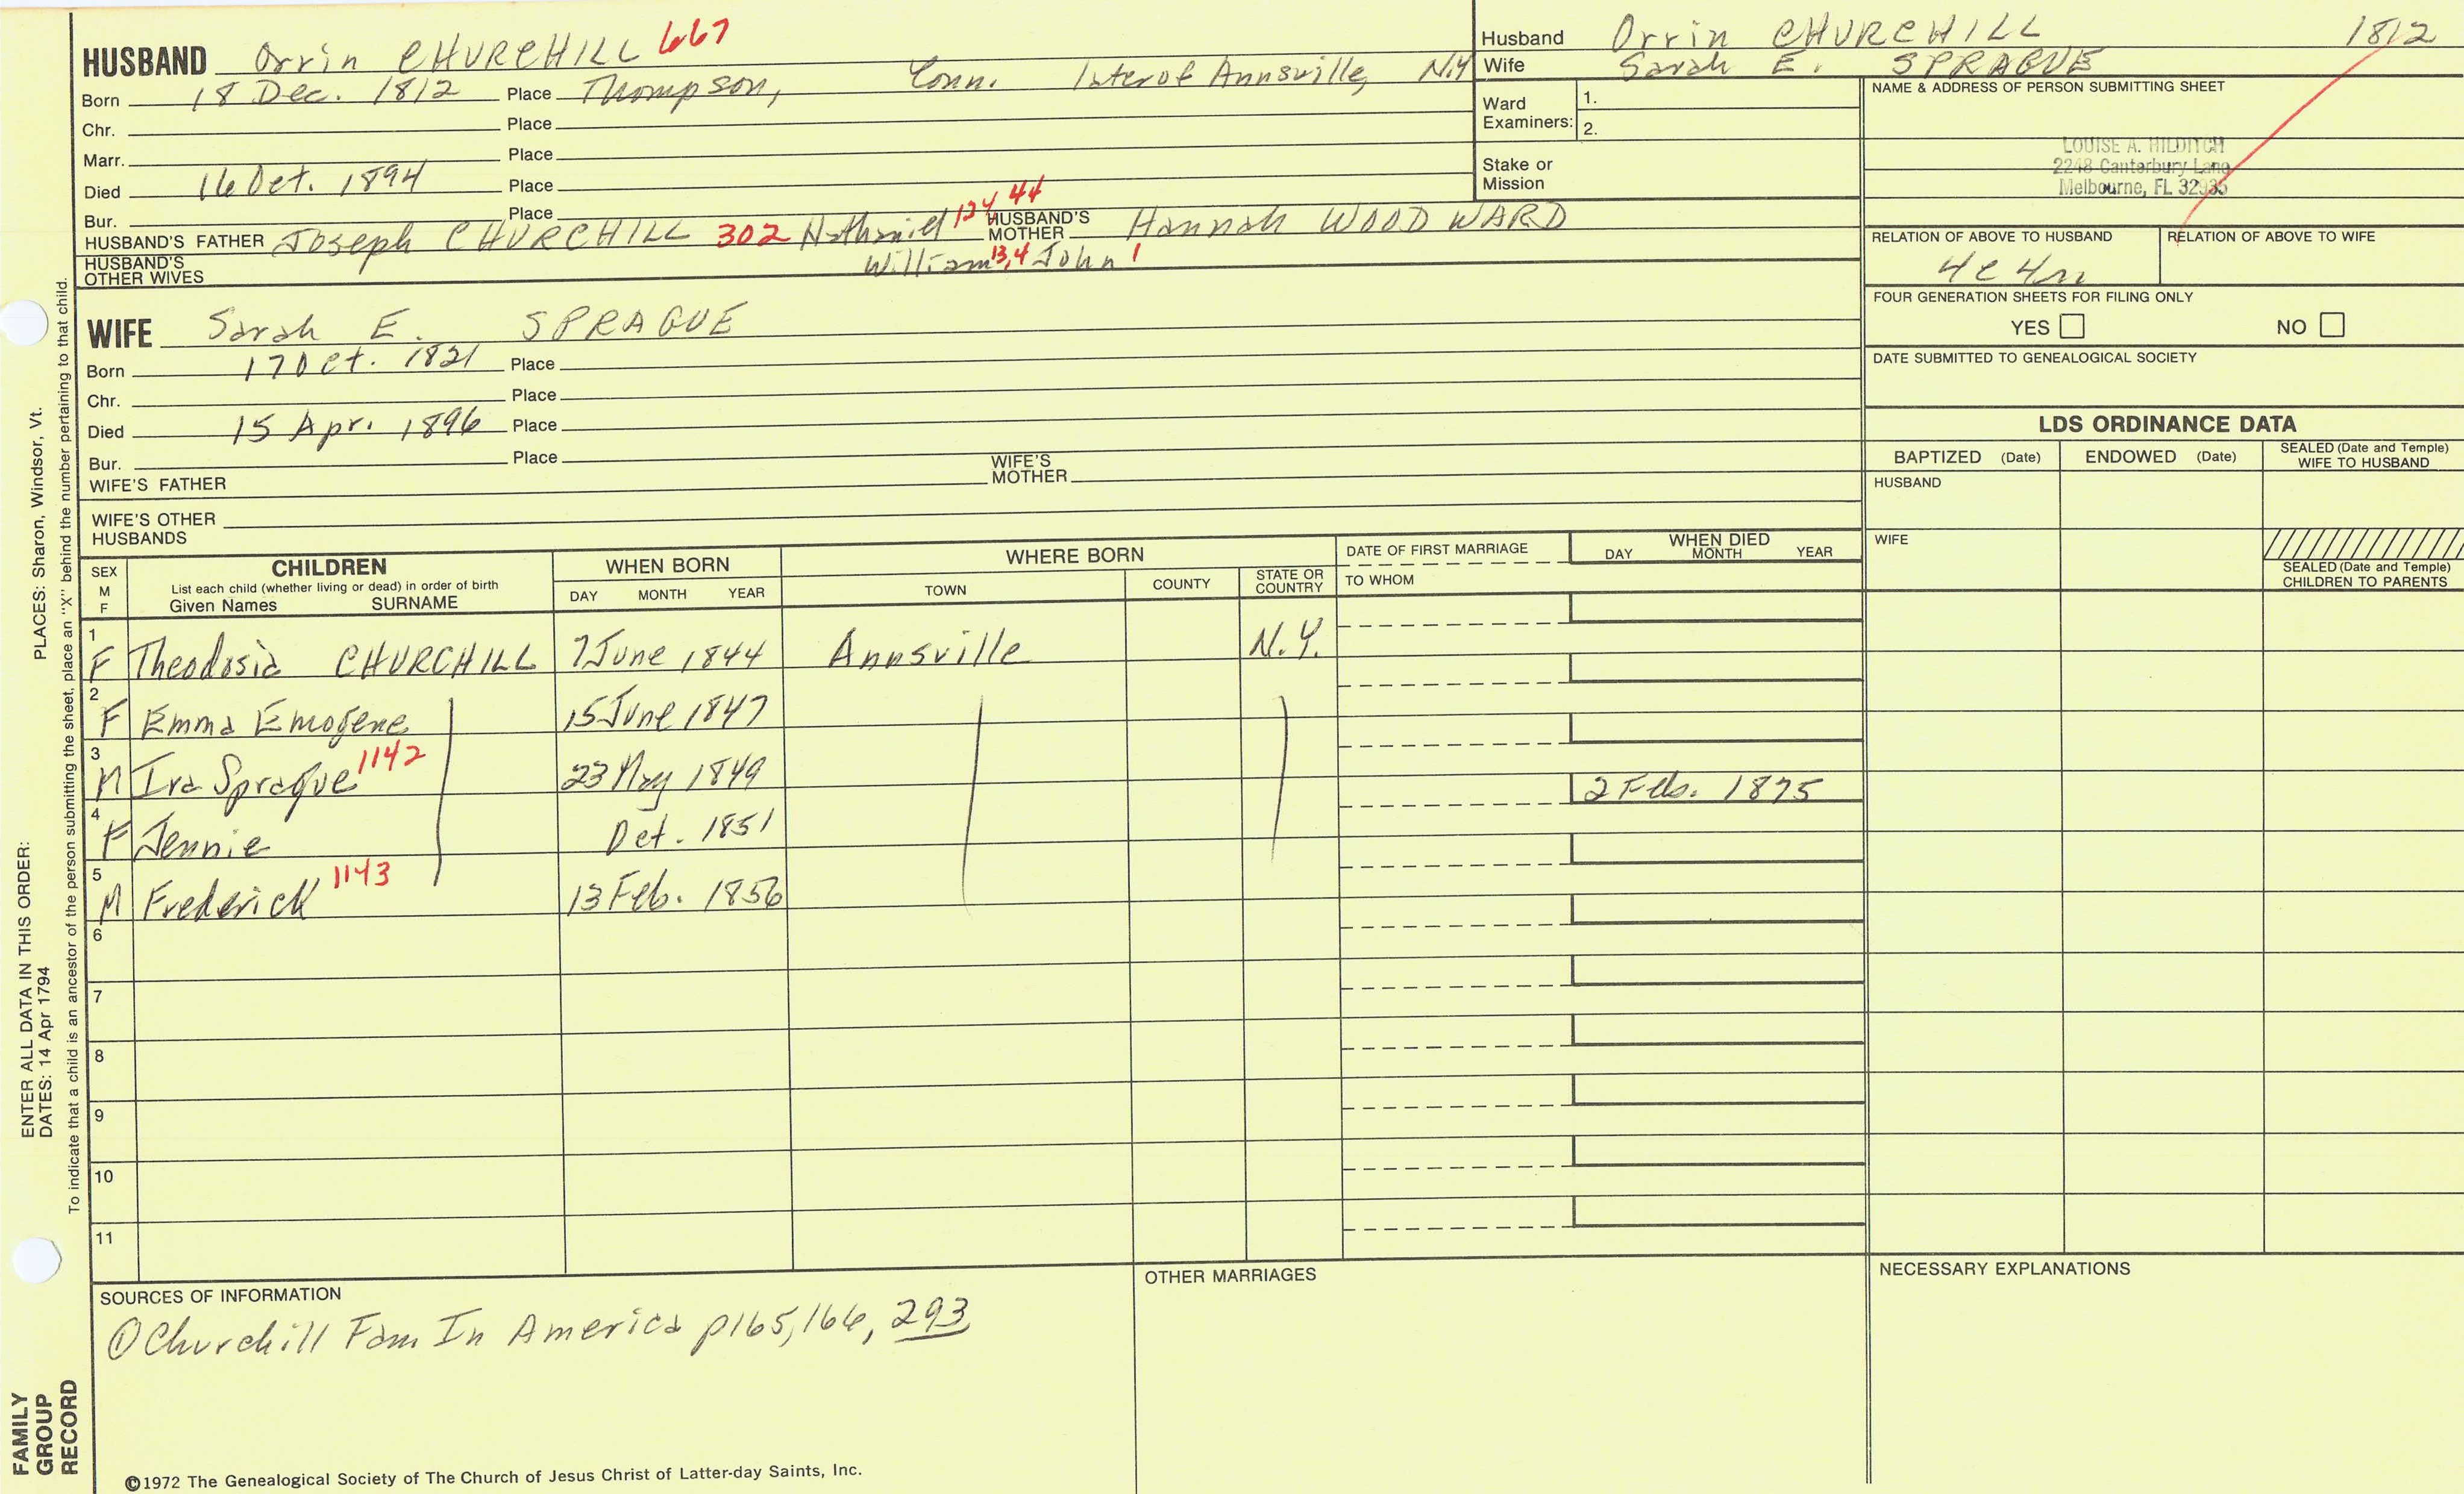 HUSBAND Orrin CHURCHILL 667
Born 18 Dec. 1812 Place Thompson, Conn. later of Annsville, N.Y
Chr. Place
Marr. Place
Died 16 Oct. 1894 Place
Bur. Place
HUSBAND'S FATHER Joseph CHURCHILL 302 Nathaniel 124 44 HUSBAND'S MOTHER Hannah WOODWARD
William 13,4 John 1
HUSBAND'S OTHER WIVES
Husband Orrin CHURCHILL 1812
Wife Sarah E. SPRAGUE
Ward Examiners: 1.
2.
Stake or Mission
NAME & ADDRESS OF PERSON SUBMITTING SHEET
LOUISE A. HILDITCH
2248 Canterbury Lane
Melbourne, FL 32935
RELATION OF ABOVE TO HUSBAND RELATION OF ABOVE TO WIFE
4c 4r
FOUR GENERATION SHEETS FOR FILING ONLY
YES NO
DATE SUBMITTED TO GENEALOGICAL SOCIETY
WIFE Sarah E. SPRAGUE
Born 17 Oct. 1821 Place
Chr. Place
Died 15 Apr. 1896 Place
Bur. Place
WIFE'S FATHER WIFE'S MOTHER
WIFE'S OTHER HUSBANDS
LDS ORDINANCE DATA
BAPTIZED (Date) ENDOWED (Date) SEALED (Date and Temple) WIFE TO HUSBAND
HUSBAND
WIFE
SEALED (Date and Temple) CHILDREN TO PARENTS
SEX M F
CHILDREN
List each child (whether living or dead) in order of birth
Given Names SURNAME
WHEN BORN
DAY MONTH YEAR
WHERE BORN
TOWN COUNTY STATE OR COUNTRY
DATE OF FIRST MARRIAGE
TO WHOM
WHEN DIED
DAY MONTH YEAR
1 F Theodosia CHURCHILL 7 June 1844 Annsville N.Y.
2 F Emma Emogene 15 June 1847
3 M Ira Sprague 1142 23 May 1849 2 Feb. 1875
4 F Jennie Oct. 1851
5 M Frederick 1143 13 Feb. 1856
6
7
8
9
10
11
SOURCES OF INFORMATION
① Churchill Fam In America p165, 166, 293
OTHER MARRIAGES
NECESSARY EXPLANATIONS
©1972 The Genealogical Society of The Church of Jesus Christ of Latter-day Saints, Inc.
FAMILY GROUP RECORD
ENTER ALL DATA IN THIS ORDER:
DATES: 14 Apr 1794
PLACES: Sharon, Windsor, Vt.
To indicate that a child is an ancestor of the person submitting the sheet, place an "X" behind the number pertaining to that child.